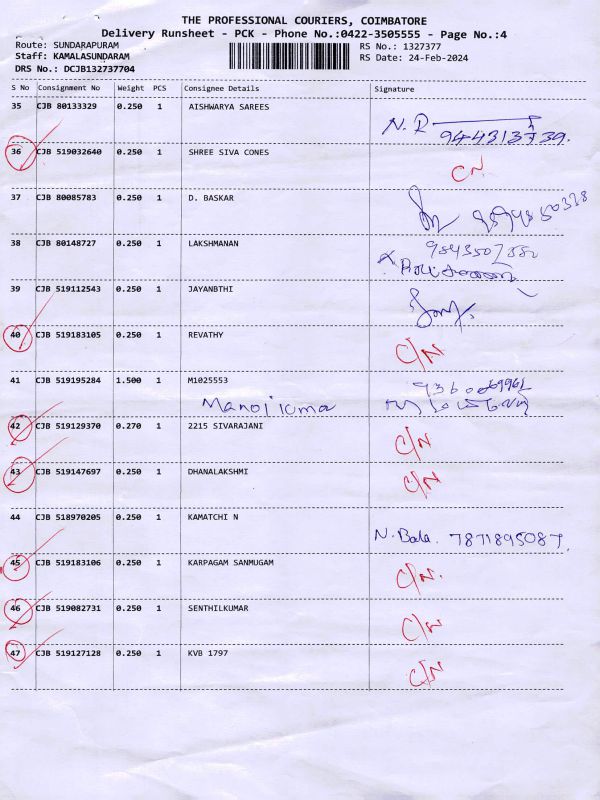 THE PROFESSIONAL COURIERS, COIMBATORE
Delivery Runsheet - PCK - Phone No.:0422-3505555 - Page No.:4
Route: SUNDARAPURAM RS No.: 1327377
Staff: KAMALASUNDARAM RS Date: 24-Feb-2024
DRS No.: DCJB132737704
S No Consignment No Weight PCS Consignee Details Signature
35 CJB 80133329 0.250 1 AISHWARYA SAREES N.R
9443137739.
36 CJB 519032640 0.250 1 SHREE SIVA CONES CN.
37 CJB 80085783 0.250 1 D. BASKAR
38 CJB 80148727 0.250 1 LAKSHMANAN
39 CJB 519112543 0.250 1 JAYANBTHI
40 CJB 519183105 0.250 1 REVATHY C/N
41 CJB 519195284 1.500 1 M1025553
Manoj kuma
42 CJB 519129370 0.270 1 2215 SIVARAJANI C/N
43 CJB 519147697 0.250 1 DHANALAKSHMI C/N
44 CJB 518970205 0.250 1 KAMATCHI N
N. Bala. 7871895087.
45 CJB 519183106 0.250 1 KARPAGAM SANMUGAM C/N.
46 CJB 519082731 0.250 1 SENTHILKUMAR C/N
47 CJB 519127128 0.250 1 KVB 1797 C/N